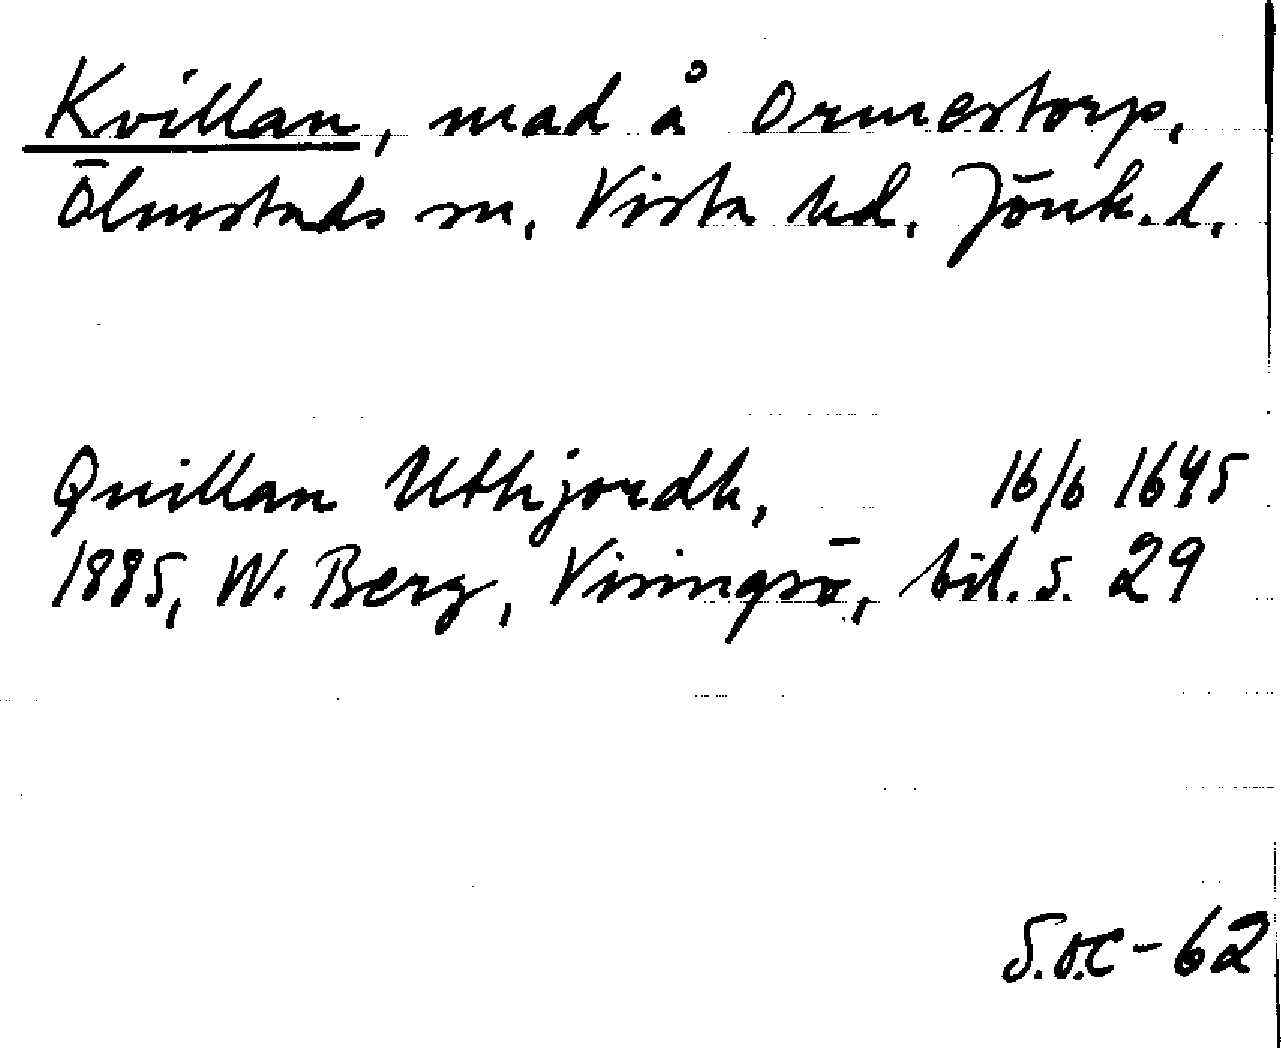 Kvillan, mad å Ormestorp,
Ölmstads sn, Vista hd, Jönk. l,
Quillan Uthjordh, 16/6 1645
1885, W. Berg, Visingsö, bil. s. 29
S.o.C-62